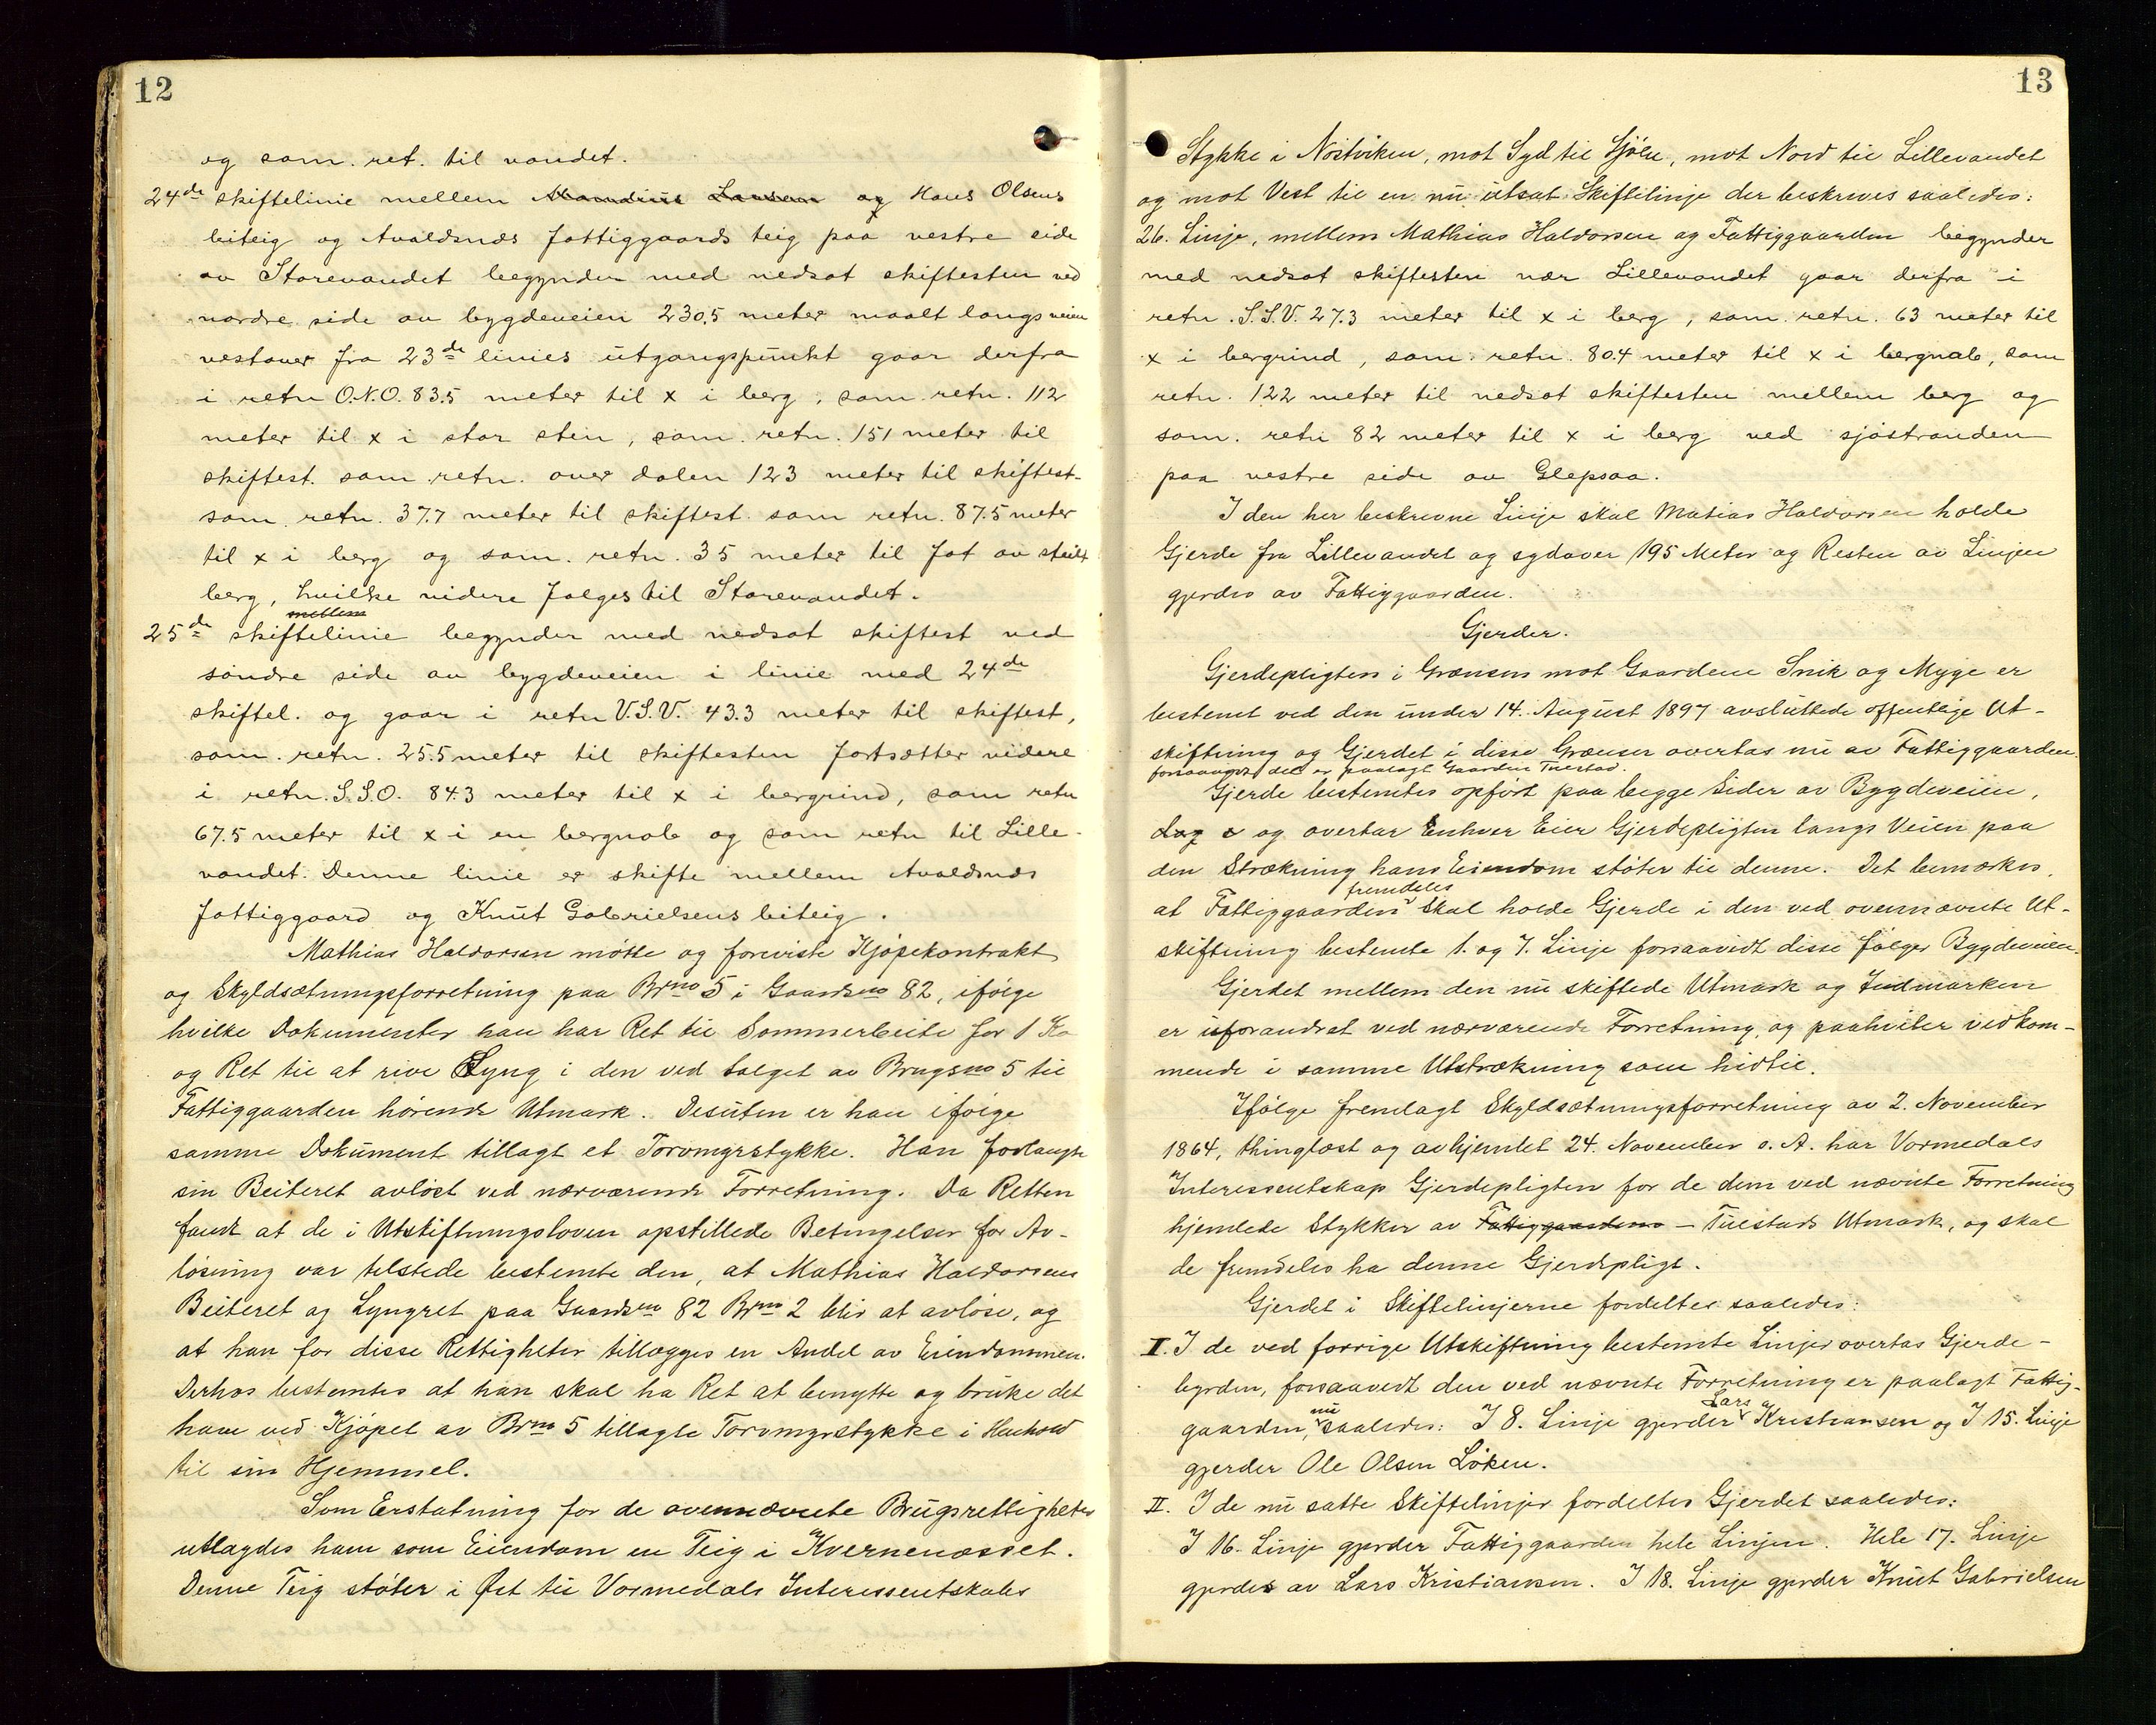 12
og sam. ret. til vandet.
24de skiftelinie mellem Mandius Larsen og Hans Olsens
beiteig og Avaldsnæs fattiggaards teig paa vestre side
av Storevandet begynder med nedsat skiftesten ved
nordre side av bygdeveien 230.5 meter maalt langs veien
vestover fra 23de linies utgangspunkt gaar derfra
i retn O.N.O. 83.5 meter til x i berg, sam. retn. 112
meter til x i stor sten, sam. retn. 151 meter til
skiftest. sam retn. over dalen 123 meter til skiftest.
sam. retn. 37.7 meter til skiftest. sam retn. 87.5 meter
til x i berg og sam. retn. 35 meter til fot av steilt
berg, hvilke videre følges til Storevandet.
mellem
25de skiftelinie begynder med nedsat skiftest ved
søndre side av bygdeveien i linie med 24de
skiftel. og gaar i retn V.S.V. 43.3 meter til skiftest,
sam. retn. 25.5 meter til skiftesten fortsætter videre
i retn. S.S.O. 84.3 meter til x i bergrind, sam retn
67.5 meter til x i en bergnab og sam retn til Lille-
vandet. Denne linie er skifte mellem Avaldsnæs
fattiggaard og Knut Gabrielsens beiteig.
Mathias Haldorsen møtte og foreviste Kjøpekontrakt
og Skyldsætningsforretning paa Brno 5 i Gaardsno 82, ifølge
hvilke Dokumenter han har Ret til Sommerbeite for 1 Ko
og Ret til at rive Lyng i den ved Salget av Brugsno 5 til
Fattiggaarden hørende Utmark. Desuten er han ifølge
samme Dokument tillagt et Torvmyrstykke. Han forlangte
sin Beiteret avløst ved nærværende Forretning. Da Retten
fandt at de i Utskiftningsloven opstillede Betingelser for Av-
løsning var tilstede bestemte den, at Mathias Haldorsens
Beiteret og Lyngret paa Gaardsno 82 Brno 2 blir at avløse, og
at han for disse Rettigheter tillægges en Andel av Eiendommen.
Derhos bestemtes at han skal ha Ret at benytte og bruke det
ham ved Kjøpet av Brno 5 tillagte Torvmyrstykke i Henhold
til sin Hjemmel.
Som Erstatning for de ovennævnte Brugsrettigheter
utlagdes ham som Eiendom en Teig i Kvernenæsset.
Denne Teig støter i Øst til Vormedals Interessentskabs
13
Stykke i Nøstviken, mot Syd til Sjøen, mot Nord til Lillevandet
og mot Vest til en nu utsat Skiftelinje der beskrives saaledes:
26. Linje, mellem Mathias Haldorsen og Fattiggaarden begynder
med nedsat skiftesten nær Lillevandet gaar derfra i
retn. S.S.V. 27.3 meter til x i berg, sam. retn. 63 meter til
x i bergrind, sam. retn. 80.4 meter til x i bergnab, sam
retn. 122 meter til nedsat skiftesten mellem berg og
sam. retn 82 meter til x i berg ved sjøstranden
paa vestre side av Glepsaa.
I den her beskrevne Linje skal Matias Haldorsen holde
Gjerde fra Lillevandet og sydover 195 Meter og Resten av Linjen
gjerdes av Fattiggaarden.
Gjerder.
Gjerdepligten i Grænsen mot Gaardene Snik og Myge er
bestemt ved den under 14. August 1897 avsluttede offentlige Ut-
skiftning og Gjerdet i disse Grænser overtas nu av Fattiggaarden
forsaavidt det er paalagt Gaarden Tuestad.
Gjerde bestemtes opført paa begge Sider av Bygdeveien,
og overtar Enhver Eier Gjerdepligten langs Veien paa
den Strækning hans Eiendom støter til denne. Det bemærkes,
fremdeles
at Fattiggaarden skal holde Gjerde i den ved ovennævnte Ut-
skiftning bestemte 1. og 7. Linje forsaavidt disse følger Bygdeveien.
Gjerdet mellem den nu skiftede Utmark og Indmarken
er uforandret ved nærværende Forretning, og paahviler vedkom-
mende i samme Utstrækning som hidtil.
Ifølge fremlagt Skyldsætningsforretning av 2. November
1864, thinglæst og avhjemlet 24. November s. A. har Vormedals
Interessentskap Gjerdepligten for de dem ved nævnte Forretning
hjemlede Stykker av Fattiggaardens – Tuestads Utmark, og skal
de fremdeles ha denne Gjerdepligt.
Gjerdet i Skiftelinjerne fordeltes saaledes:
I. I de ved forrige Utskiftning bestemte Linjer overtas Gjerde-
byrden, forsaavidt den ved nævnte Forretning er paalagt Fattig-
nu Lars
gaarden, saaledes: I 8. Linje gjerder Kristiansen og I 15. Linje
gjerder Ole Olsen Løken.
II. I de nu satte Skiftelinjer fordeltes Gjerdet saaledes:
I 16. Linje gjerder Fattiggaarden hele Linjen. Hele 17. Linje
gjerdes av Lars Kristiansen. I 18. Linje gjerder Knut Gabrielsen